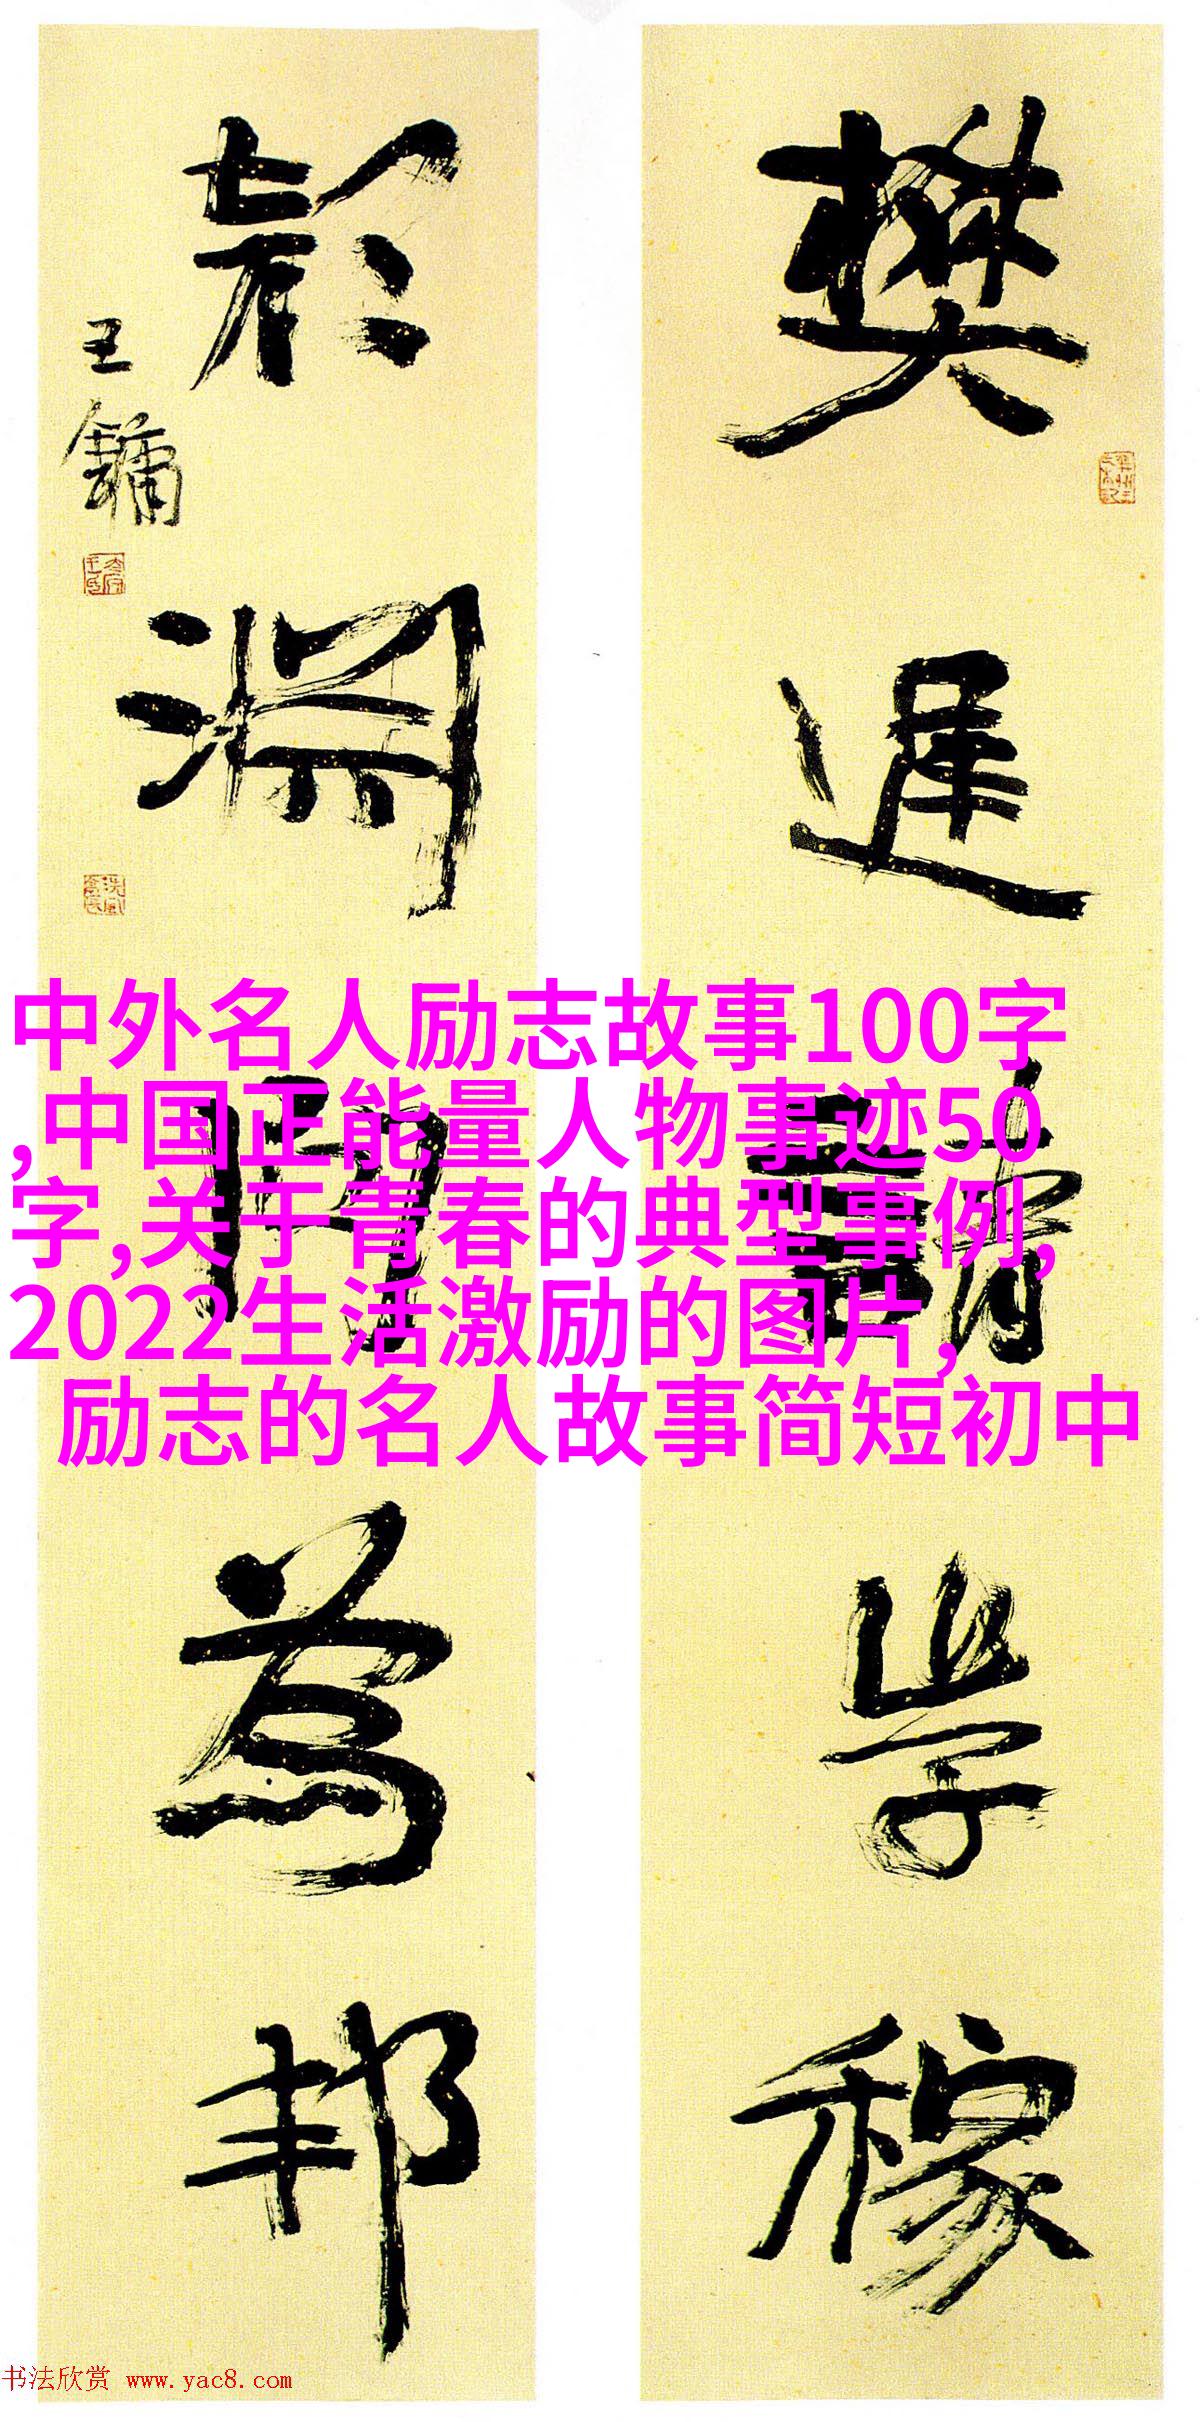 樊遲請學稼
淵問為邦
王鏞
中外名人励志故事100字
,中国正能量人物事迹50
字,关于青春的典型事例,
2022生活激励的图片,
励志的名人故事简短初中
书法欣赏 www.yac8.com